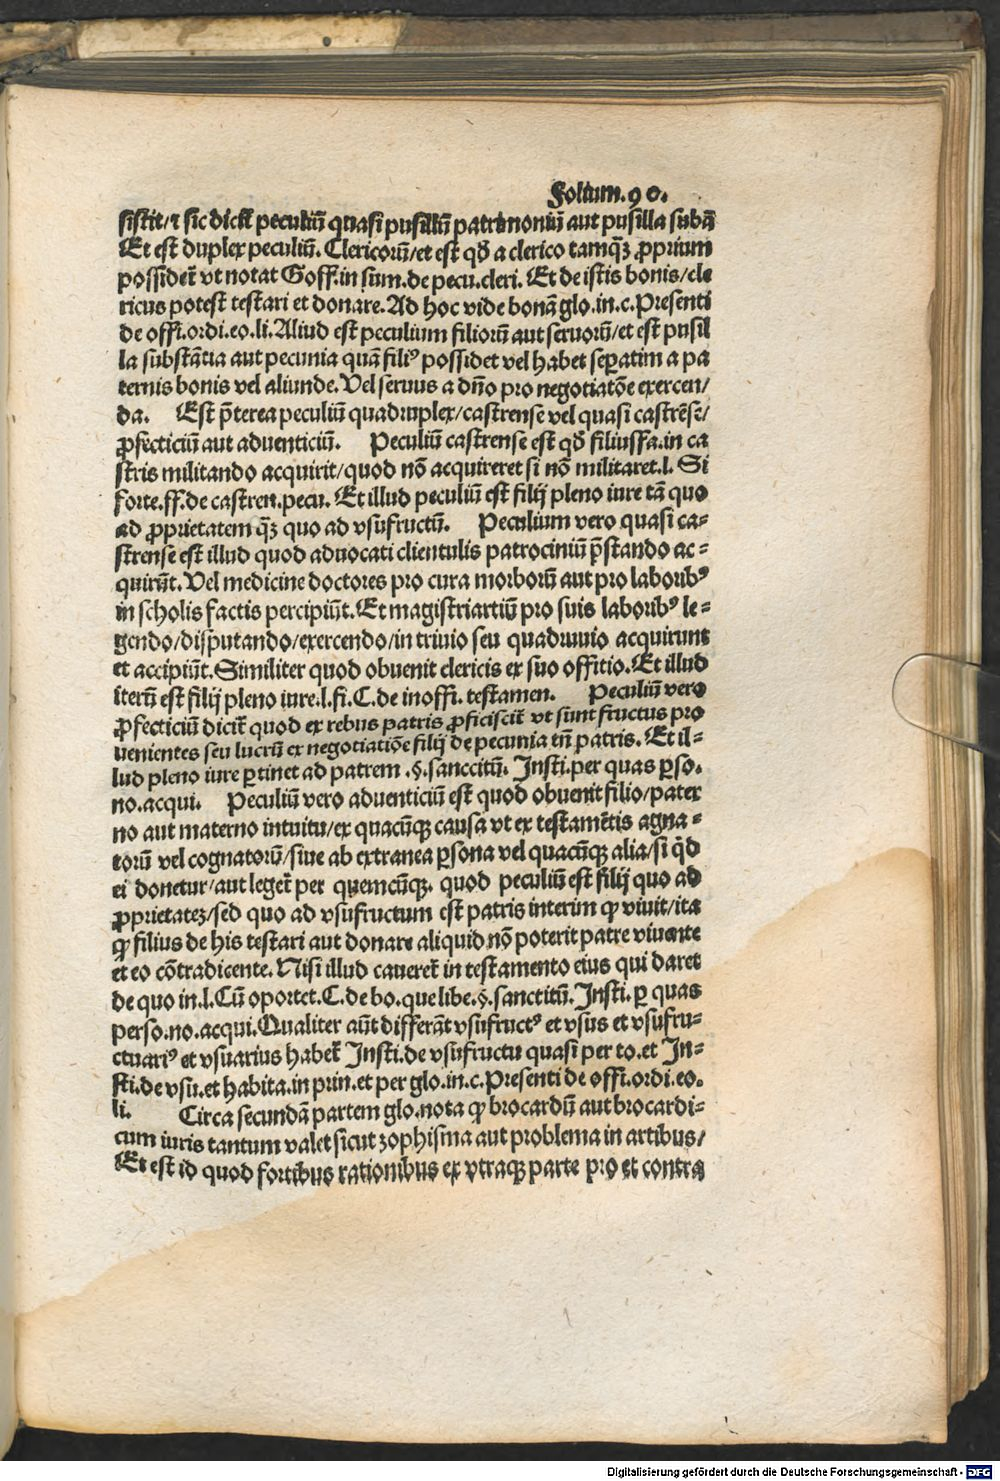 Folium.90.
sistit/⁊ sic dicit̃ peculiũ quasi pusillũ patrimoniũ aut pusilla subã
Et est duplex peculiũ. Clericorũ/et est qď a clerico tamqȝ ꝓprium
possidet̃ vt notat Goff.in sum.de pecu.cleri. Et de istis bonis/cle
ricus potest testari et donare. Ad hoc vide bonã glo.in.c.Presenti
de offi.ordi.eo.li. Aliud est peculium filiorũ aut seruorũ/et est pusil
la substãtia aut pecunia quã filiꝰ possidet vel habet seꝑatim a pa
ternis bonis vel aliunde. Vel seruus a dño pro negotiatõe exercen/
da. Est p̃terea peculiũ quadruplex/castrense vel quasi castrẽse/
ꝓfecticiũ aut aduenticiũ. Peculiũ castrense est qď filiusfa.in ca
stris militando acquirit/quod nõ acquireret si nõ militaret.l. Si
forte.ff.de castren.pecu. Et illud peculiũ est filij pleno iure tã quo
ad ꝓprietatem qȝ̃ quo ad vsufructũ. Peculium vero quasi ca-
strense est illud quod aduocati clientulis patrociniũ p̃stando ac-
quirũt. Vel medicine doctores pro cura morborũ aut pro laboribꝰ
in scholis factis percipiũt. Et magistriartiũ pro suis laboribꝰ le-
gendo/disputando/exercendo/in triuio seu quadruuio acquirunt
et accipiũt. Similiter quod obuenit clericis ex suo offitio. Et illud
iterũ est filij pleno iure.l.fi.C.de inoffi.testamen. Peculiũ vero
ꝓfecticiũ dicit̃ quod ex rebus patris ꝓficiscit̃ vt sunt fructus pro
uenientes seu lucrũ ex negotiatiõe filij de pecunia tñ patris. Et il-
lud pleno iure ꝑtinet ad patrem .§.sanccitũ. Insti.per quas ꝑso.
no.acqui. Peculiũ vero aduenticiũ est quod obuenit filio/pater
no aut materno intuitu/ex quacũqȝ causa vt ex testamẽtis agna-
torũ vel cognatorũ/siue ab extranea ꝑsona vel quacũqȝ alia/si qď
ei donetur/aut leget̃ per quemcũqȝ. quod peculiũ est filij quo ad
ꝓprietateȝ/sed quo ad vsufructum est patris interim ꝙ viuit/ita
ꝙ filius de his testari aut donare aliquid nõ poterit patre viuente
et eo cõtradicente. Nisi illud caueret̃ in testamento eius qui daret
de quo in.l.Cũ oportet.C.de bo.que libe.§.sanctitũ. Insti.ꝑ quas
perso.no.acqui. Qualiter aũt differãt vsufructꝰ et vsus et vsufru-
ctuariꝰ et vsuarius habet̃ Insti.de vsufructu quasi per to.et In-
sti.de vsu.et habita.in prin.et per glo.in.c.Presenti de offi.ordi.eo.
li. Circa secundã partem glo.nota ꝙ brocardũ aut brocardi-
cum iuris tantum valet sicut zophisma aut problema in artibus/
Et est id quod fortibus rationibus ex vtraqȝ parte pro et contra
Digitalisierung gefördert durch die Deutsche Forschungsgemeinschaft - DFG